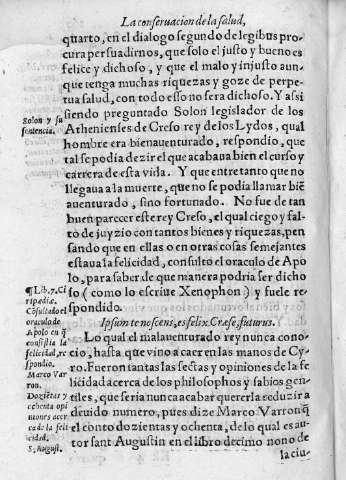 La conseruacion de la salud,
quarto, en el dialogo segundo de legibus pro
cura persuadirnos, que solo el justo y bueno es
felice y dichoso, y que el malo y injusto aun-
que tenga muchas riquezas y goze de perpe-
tua salud, con todo esso no sera dichoso. Y assi
siendo preguntado Solon legislador de los
Athenienses de Creso rey de los Lydos, qual
hombre era bienauenturado, respondio, que
tal se podia dezir el que acabaua biẽ el curso y
carrera de esta vida. Y que entretanto que no
llegaua a la muerte, que no se podia llamar biẽ
auenturado, sino fortunado. No fue de tan
buen parecer este rey Creso, el qual ciego y fal-
to de juyzio con tantos bienes y riquezas, pen
sando que en ellas o en otras cosas semejantes
estaua la felicidad, consulto el oraculo de Apo
lo, para saber de que manera podria ser dicho
so (como lo escriue Xenophon) y fuele re
spondido.
Ipsum te noscens, es felix Cræse, futurus.
Lo qual el malauenturado rey nunca cono-
cio, hasta que vino a caer en las manos de Cy-
ro. Fueron tantas las sectas y opiniones de la fe
licidad acerca de los philosophos y sabios gen-
tiles, que seria nunca acabar quererla reduzir a
deuido numero, pues dize Marco Varron q̃
el conto dozientas y ochenta, de lo qual es au-
tor sant Augustin en el libro decimo nono de
la ciu-
Solon y su
sentencia.
¶Lib. 7. Ci
ripædiæ.
Cõsultado el
oraculo de
Apolo en q̃
consistia la
felicidad, re
spondio.
Marco Var
ron.
Dozietas y
ochenta opi
niones acer
ca de la feli
cidad.
S. August.